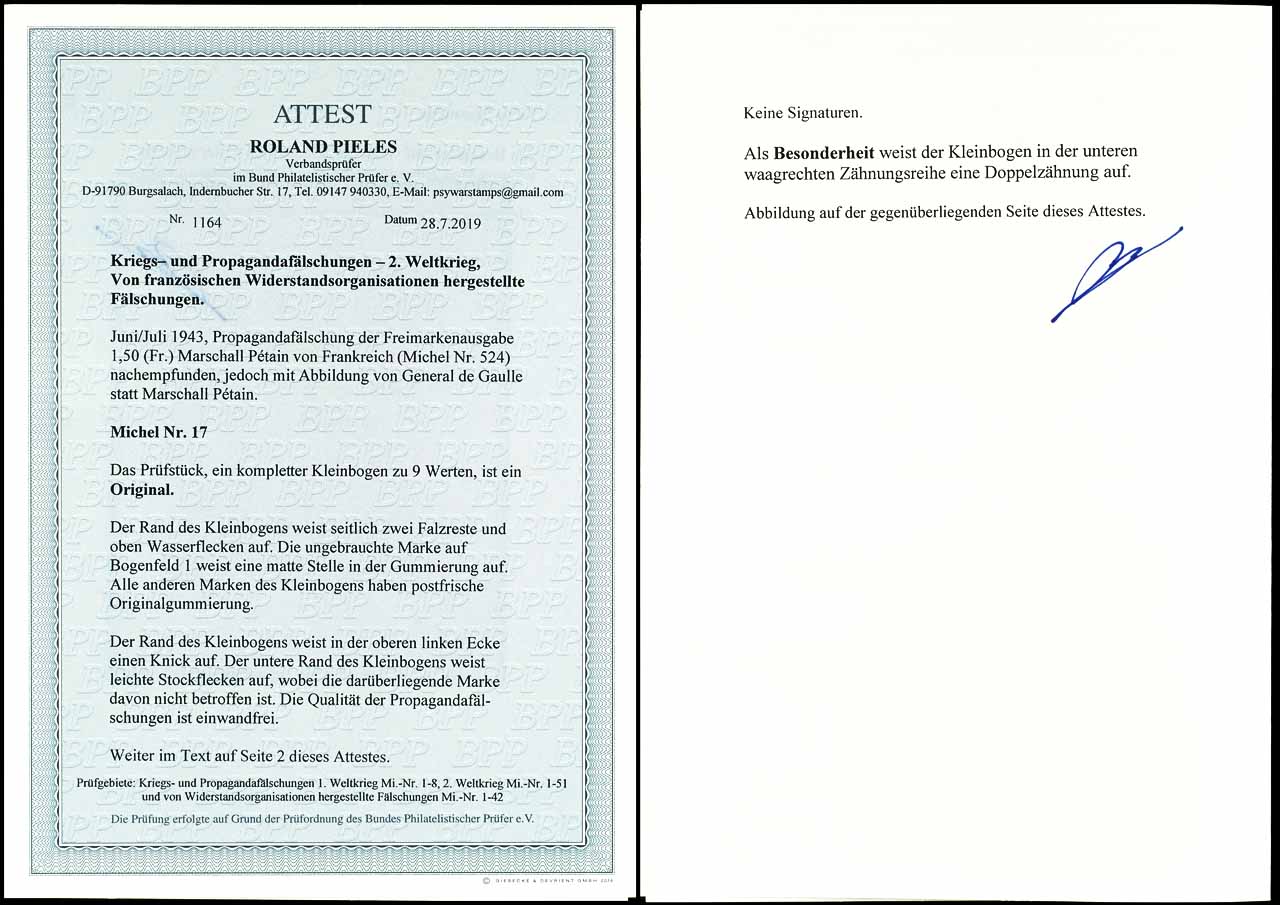 ATTEST
ROLAND PIELES
Verbandsprüfer
im Bund Philatelistischer Prüfer e. V.
D-91790 Burgsalach, Indernbucher Str. 17, Tel. 09147 940330, E-Mail: psywarstamps@gmail.com
Nr. 1164 Datum 28.7.2019
Kriegs– und Propagandafälschungen – 2. Weltkrieg,
Von französischen Widerstandsorganisationen hergestellte
Fälschungen.
Juni/Juli 1943, Propagandafälschung der Freimarkenausgabe
1,50 (Fr.) Marschall Pétain von Frankreich (Michel Nr. 524)
nachempfunden, jedoch mit Abbildung von General de Gaulle
statt Marschall Pétain.
Michel Nr. 17
Das Prüfstück, ein kompletter Kleinbogen zu 9 Werten, ist ein
Original.
Der Rand des Kleinbogens weist seitlich zwei Falzreste und
oben Wasserflecken auf. Die ungebrauchte Marke auf
Bogenfeld 1 weist eine matte Stelle in der Gummierung auf.
Alle anderen Marken des Kleinbogens haben postfrische
Originalgummierung.
Der Rand des Kleinbogens weist in der oberen linken Ecke
einen Knick auf. Der untere Rand des Kleinbogens weist
leichte Stockflecken auf, wobei die darüberliegende Marke
davon nicht betroffen ist. Die Qualität der Propagandafäl-
schungen ist einwandfrei.
Weiter im Text auf Seite 2 dieses Attestes.
Prüfgebiete: Kriegs- und Propagandafälschungen 1. Weltkrieg Mi.-Nr. 1-8, 2. Weltkrieg Mi.-Nr. 1-51
und von Widerstandsorganisationen hergestellte Fälschungen Mi.-Nr. 1-42
Die Prüfung erfolgte auf Grund der Prüfordnung des Bundes Philatelistischer Prüfer e.V.
© GIESECKE & DEVRIENT GMBH
Keine Signaturen.
Als Besonderheit weist der Kleinbogen in der unteren
waagrechten Zähnungsreihe eine Doppelzähnung auf.
Abbildung auf der gegenüberliegenden Seite dieses Attestes.